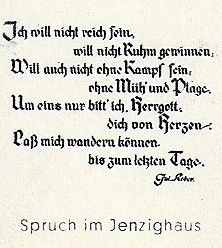 Ich will nicht reich sein,
will nicht Ruhm gewinnen;
Will auch nicht ohne Kampf sein,
ohne Müh' und Plage.
Um eins nur bitt' ich, Herrgott,
dich von Herzen:
Laß mich wandern können
bis zum letzten Tage.
Spruch im Jenzighaus